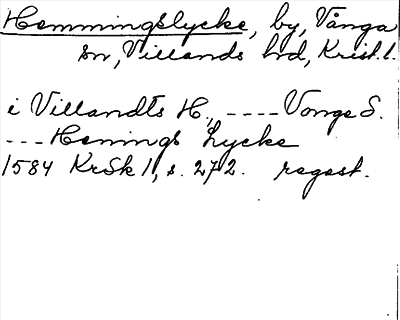 Hemmingslycke, by, Vånga
sn, Villands hd, Krist. l.
i Villandts H., ---- Vonge S.
--- Henings Lycke
1584 KrSk 1, s. 272. regest.